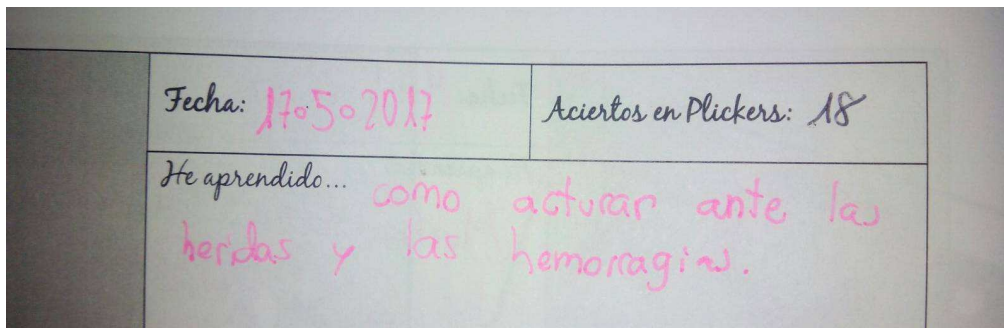 Fecha: 17o5o2017
Aciertos en Plickers: 18
He aprendido... como acturar ante las
heridas y las hemorragias.